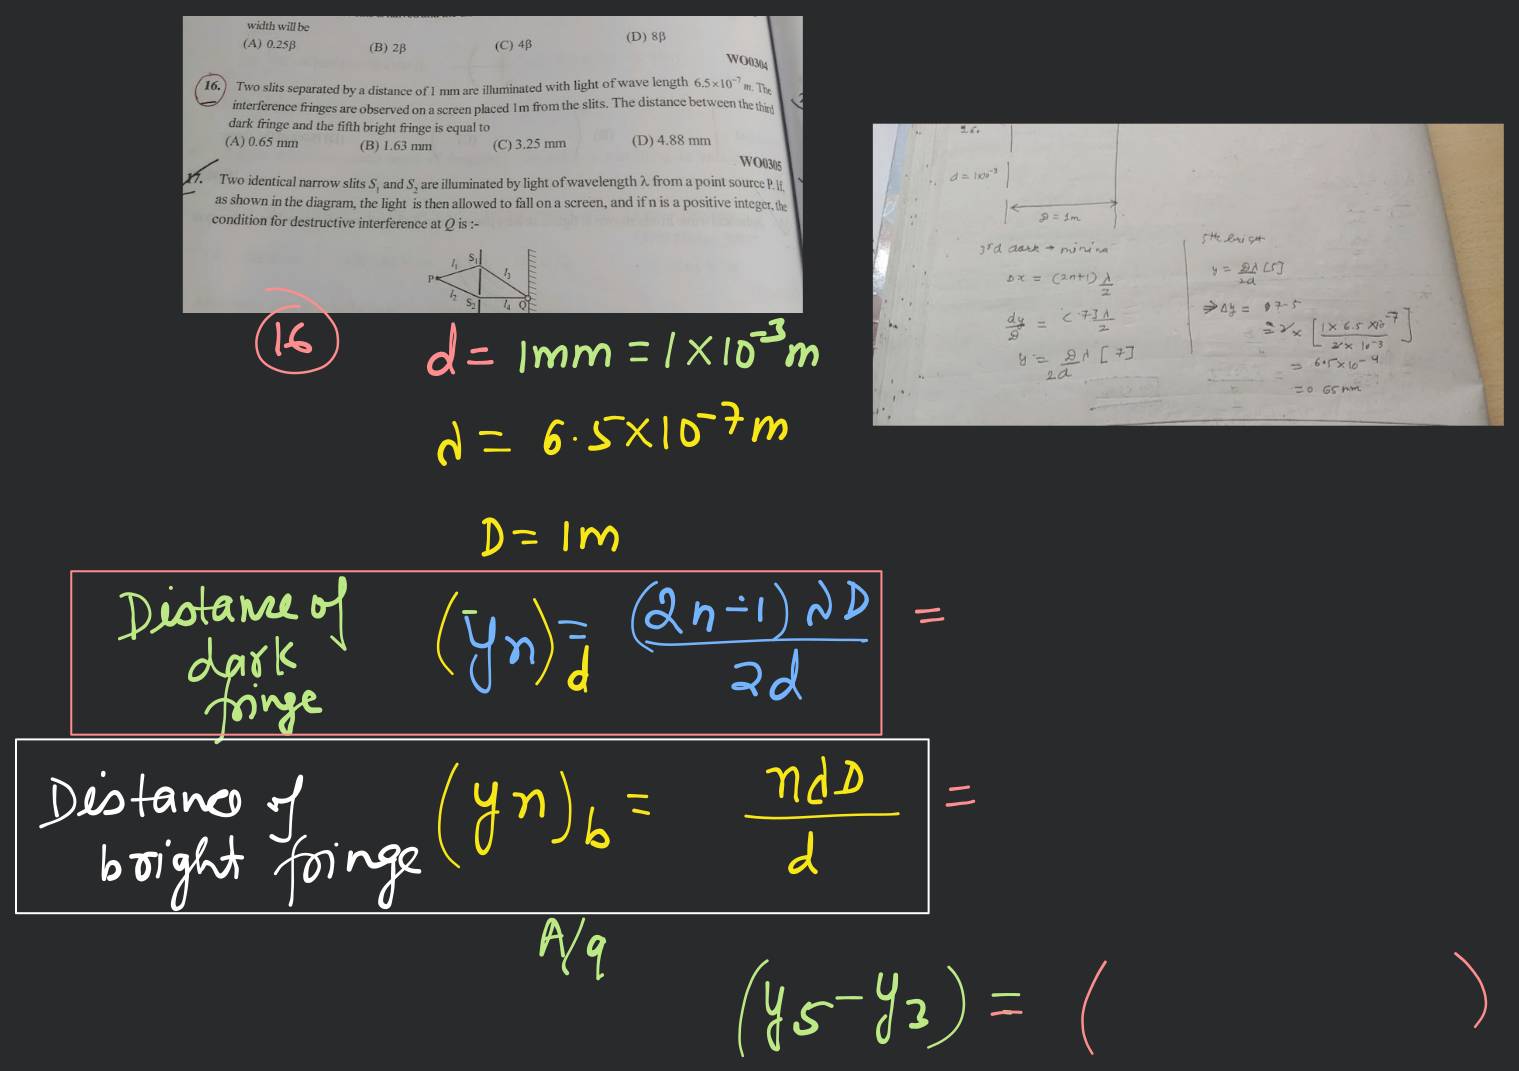 width will be
(A) 0.25β (B) 2β (C) 4β (D) 8β
WO0304
16. Two slits separated by a distance of 1 mm are illuminated with light of wave length 6.5×10⁻⁷ m. The
interference fringes are observed on a screen placed 1m from the slits. The distance between the third
dark fringe and the fifth bright fringe is equal to
(A) 0.65 mm (B) 1.63 mm (C) 3.25 mm (D) 4.88 mm
WO0305
17. Two identical narrow slits S₁ and S₂ are illuminated by light of wavelength λ from a point source P. If,
as shown in the diagram, the light is then allowed to fall on a screen, and if n is a positive integer, the
condition for destructive interference at Q is :-
P l₁ l₂ S₁ S₂ l₃ l₄ Q
26.
d = 1×10⁻³
D = 1m
3rd dark → minima
Δx = (2n+1) λ/2
dy/D = <7] λ/2
y = Dλ/2d [7]
5the bright
y = Dλ/2d [5]
⇒ Δy = 7-5
= 2 × [1 × 6.5 × 10⁻⁷ / 2 × 10⁻³]
= 6.5 × 10⁻⁴
= 0 65 mm
16
d = 1mm = 1 × 10⁻³ m
λ = 6.5 × 10⁻⁷ m
D = 1m
Distance of
dark
fringe
(yn)d = (2n-1) λD / 2d =
Distance of
bright fringe
(yn)b = nλD / d =
A/q
(y5 - y3) = ( )